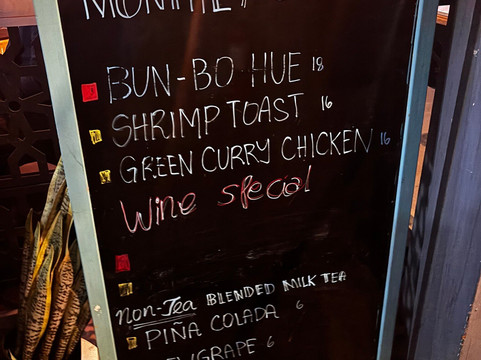 BUN-BO HUE 18
SHRIMP TOAST 16
GREEN CURRY CHICKEN 16
Wine special
non-Tea BLENDED MILK TEA
PIÑA COLADA 6
GRAPE 6